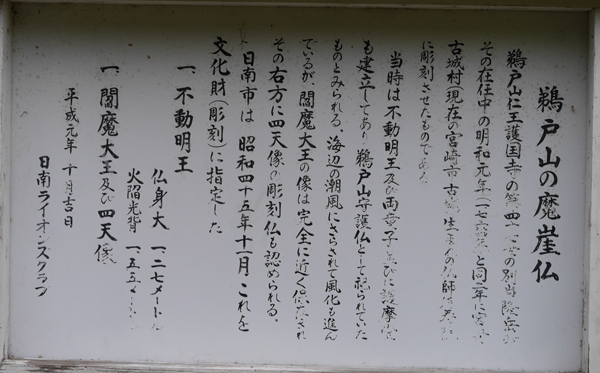 鵜戸山の魔崖仏
鵜戸山仁王護国寺の第四十 世の別当隆岳が
その在住中の明和元年(一七六四 と同二年に宮
古城村(現在の宮崎市古城 生まれの仏師
に彫刻させたものである
当時は不動明王及び両 子並びに護摩
も建立してあり 鵜戸山守護仏として祀られていた
ものとみられる 海辺の潮風にさらされて風化も進ん
でいるが 閻魔大王の像は完全に近く保たされ
その右方に四天像の彫刻仏も認められる。
日南市は 昭和四十五年十一月 これを
文化財(彫刻)に指定した
一、不動明王
仏身大 一.二七メートル
火焔光背 一.五五メートル
一、閻魔大王及び四天像
平成元年 十月吉日
日南ライオンズクラブ